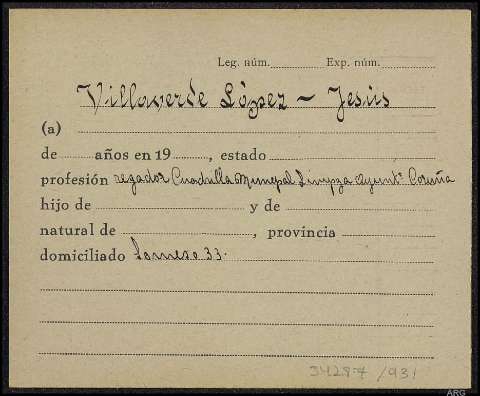 Leg. núm. Exp. núm.
Villaverde López - Jesús
(a)
de años en 19 , estado
profesión regador Cuadrilla Municpal Limpza Ayuntº Coruña
hijo de y de
natural de , provincia
domiciliado Lomeso 33.
34287/931
ARG